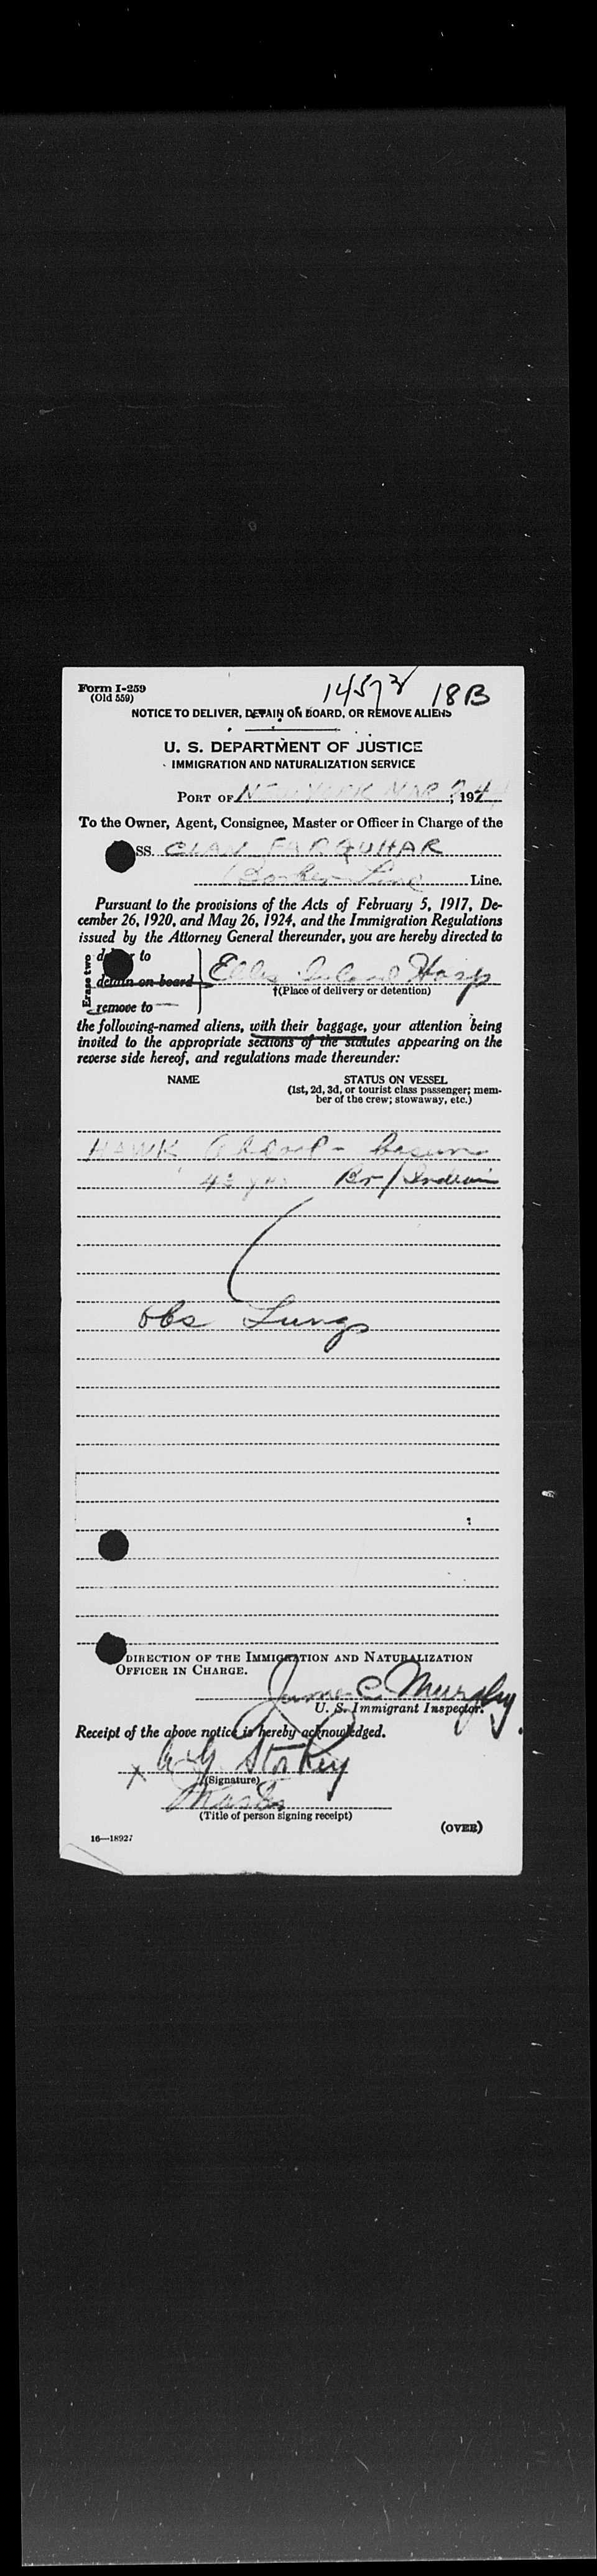 Form I-259
(Old 559)
14572 18B
NOTICE TO DELIVER, DETAIN ON BOARD, OR REMOVE ALIENS
U. S. DEPARTMENT OF JUSTICE
IMMIGRATION AND NATURALIZATION SERVICE
PORT OF NEW YORK MAR 24, 194
To the Owner, Agent, Consignee, Master or Officer in Charge of the
SS. CLAN FARQUHAR
Line.
Pursuant to the provisions of the Acts of February 5, 1917, De-
cember 26, 1920, and May 26, 1924, and the Immigration Regulations
issued by the Attorney General thereunder, you are hereby directed to
Erase two
to
detain on board
remove to
Ellis Island Hosp
†(Place of delivery or detention)
the following-named aliens, with their baggage, your attention being
invited to the appropriate sections of the statutes appearing on the
reverse side hereof, and regulations made thereunder:
NAME STATUS ON VESSEL
(1st, 2d, 3d, or tourist class passenger; mem-
ber of the crew; stowaway, etc.)
HAWK Abdool -
yrs Br / Indian
Obs Lungs
DIRECTION OF THE IMMIGRATION AND NATURALIZATION
OFFICER IN CHARGE.
James C. Murphy
U. S. Immigrant Inspector.
Receipt of the above notice is hereby acknowledged.
x Storkey
(Signature)
Master
(Title of person signing receipt)
16—18927
(OVER)